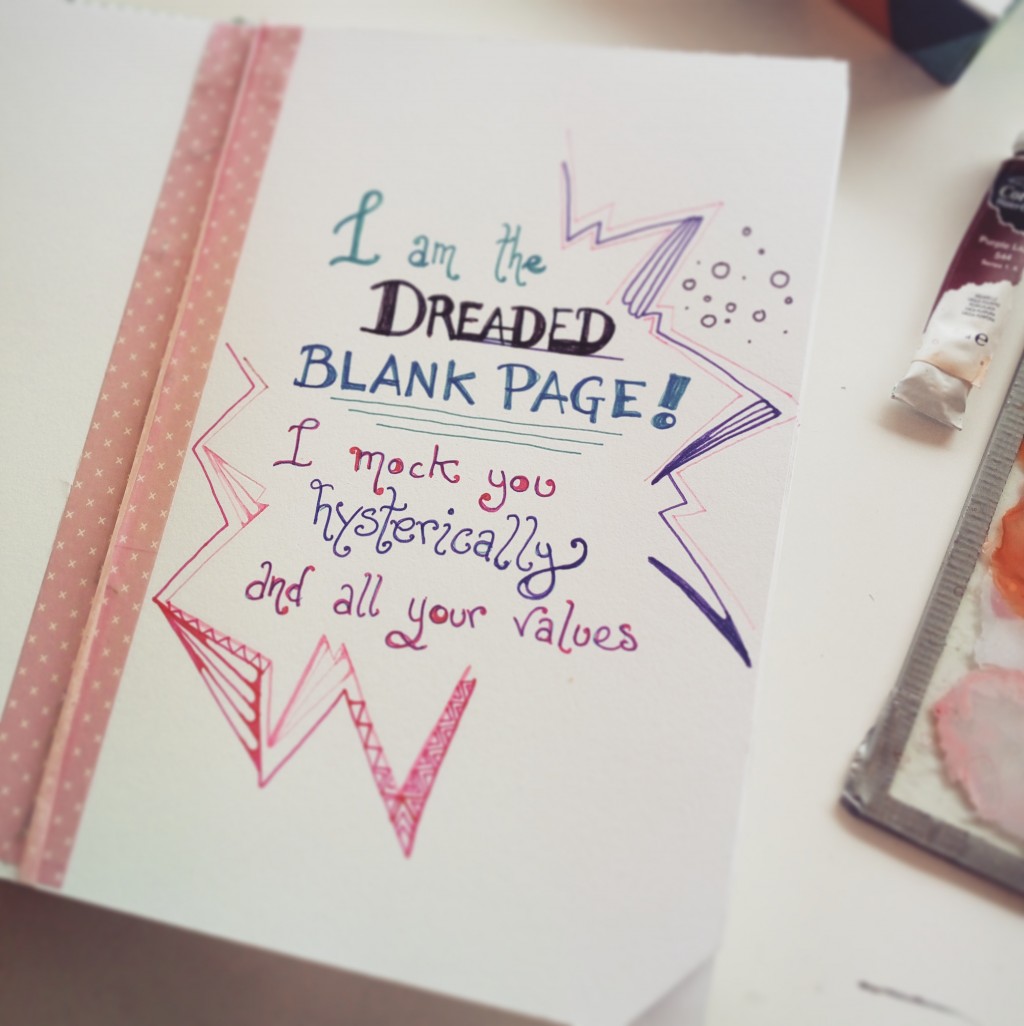 I am the
DREADED
BLANK PAGE!
I mock you
hysterically
and all your values